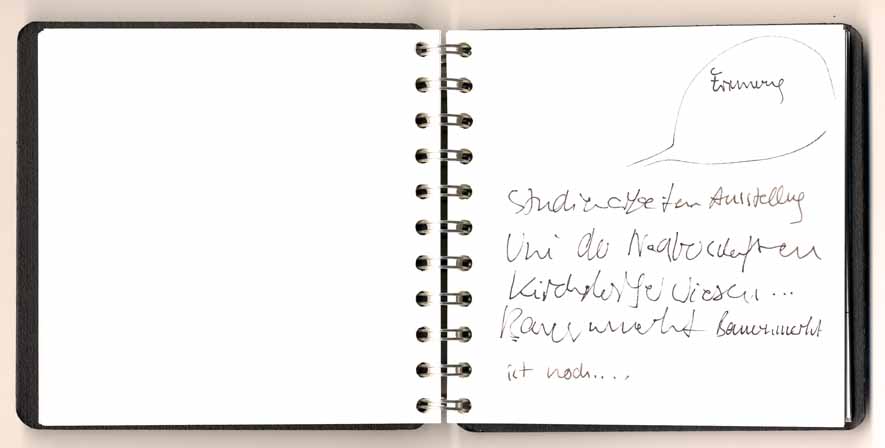 Erinnerung
Studienarbeiten Ausstellung
Uni der Nachbarschaften
Kirchdorfer Wiesen...
Bauernmarkt Bauernmarkt
ist noch....